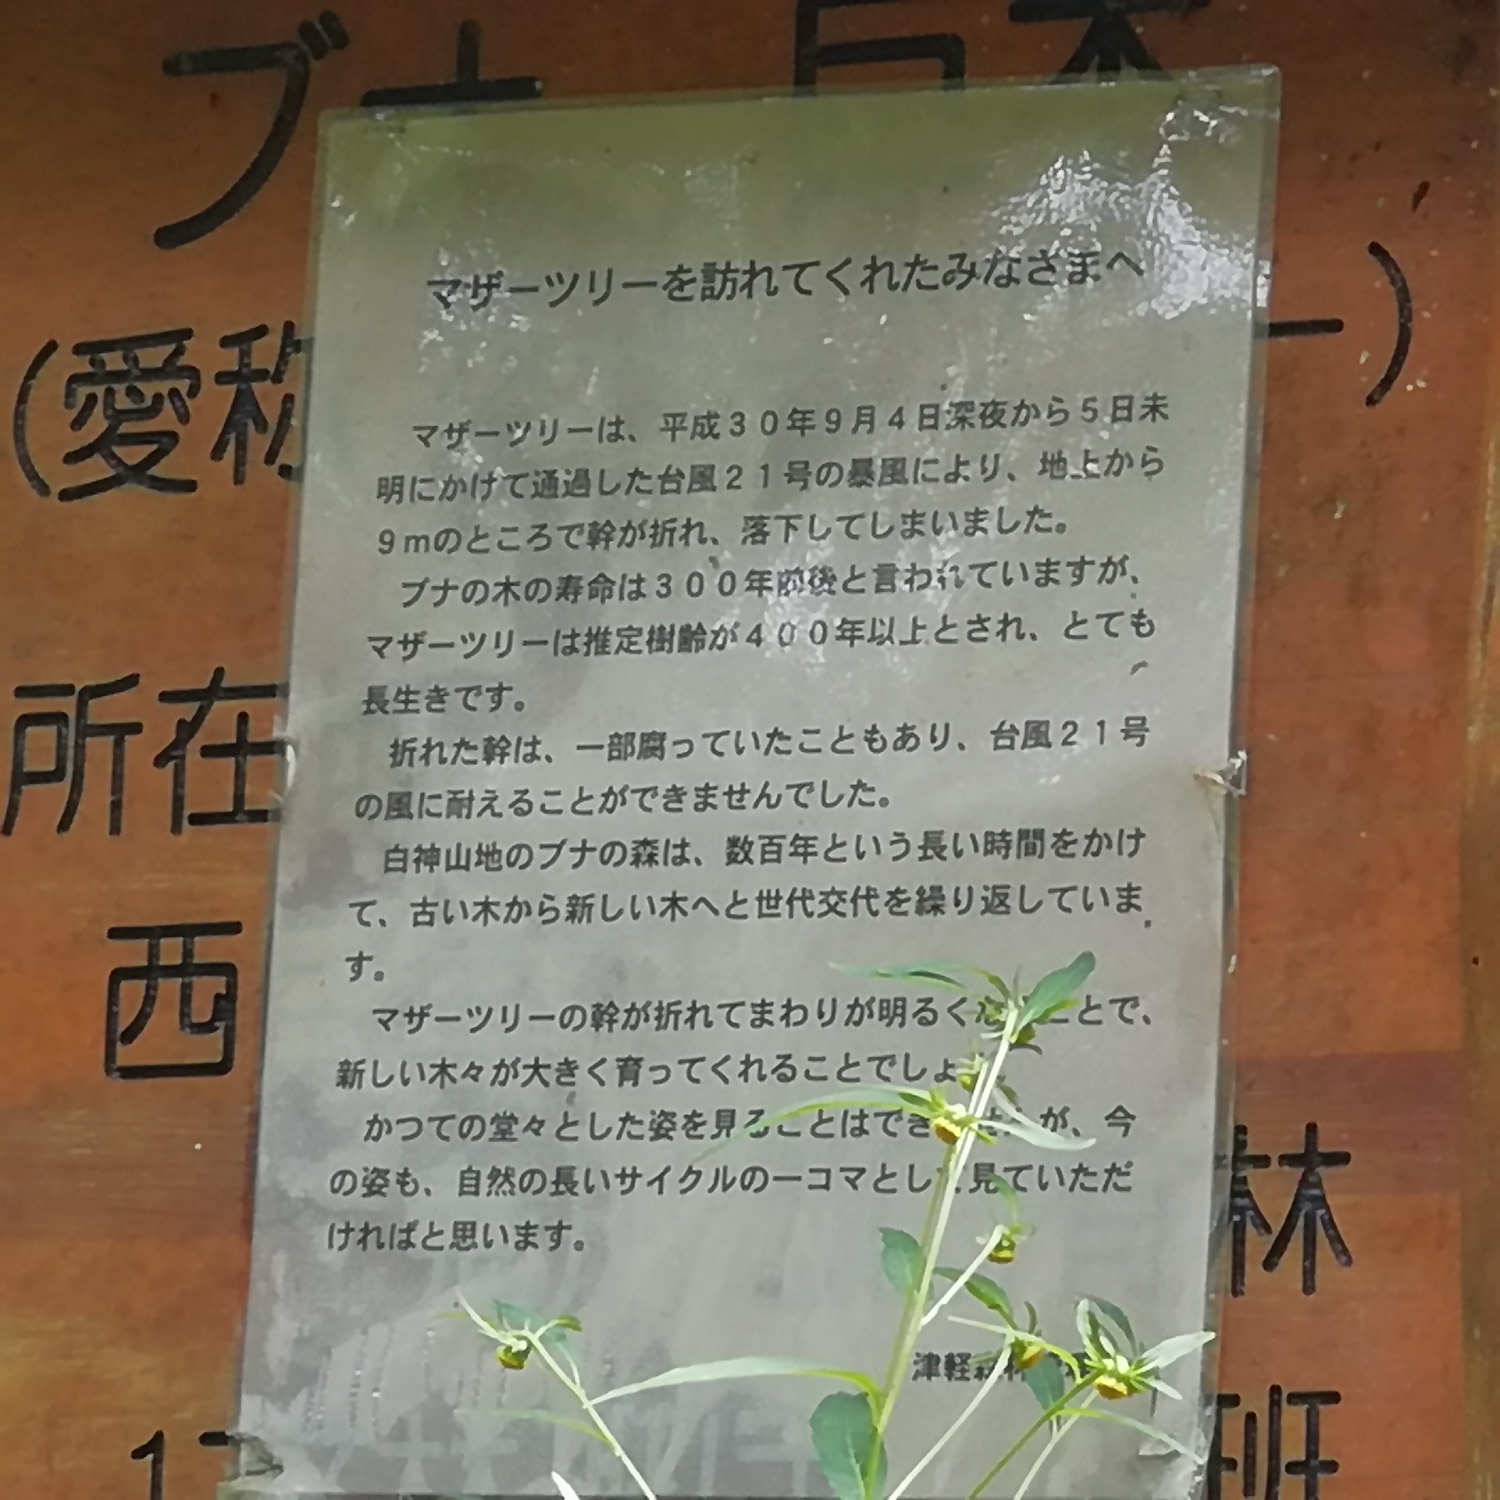 ブナ 巨木
(愛称
ー)
所在
西
林
17
班
マザーツリーを訪れてくれたみなさまへ
マザーツリーは、平成30年9月4日深夜から5日未
明にかけて通過した台風21号の暴風により、地上から
9mのところで幹が折れ、落下してしまいました。
ブナの木の寿命は300年前後と言われていますが、
マザーツリーは推定樹齢が400年以上とされ、とても
長生きです。
折れた幹は、一部腐っていたこともあり、台風21号
の風に耐えることができませんでした。
白神山地のブナの森は、数百年という長い時間をかけ
て、古い木から新しい木へと世代交代を繰り返していま
す。
マザーツリーの幹が折れてまわりが明るくなることで、
新しい木々が大きく育ってくれることでしょ
かつての堂々とした姿を見ることはできませんが、今
の姿も、自然の長いサイクルの一コマとして見ていただ
ければと思います。
津軽森林